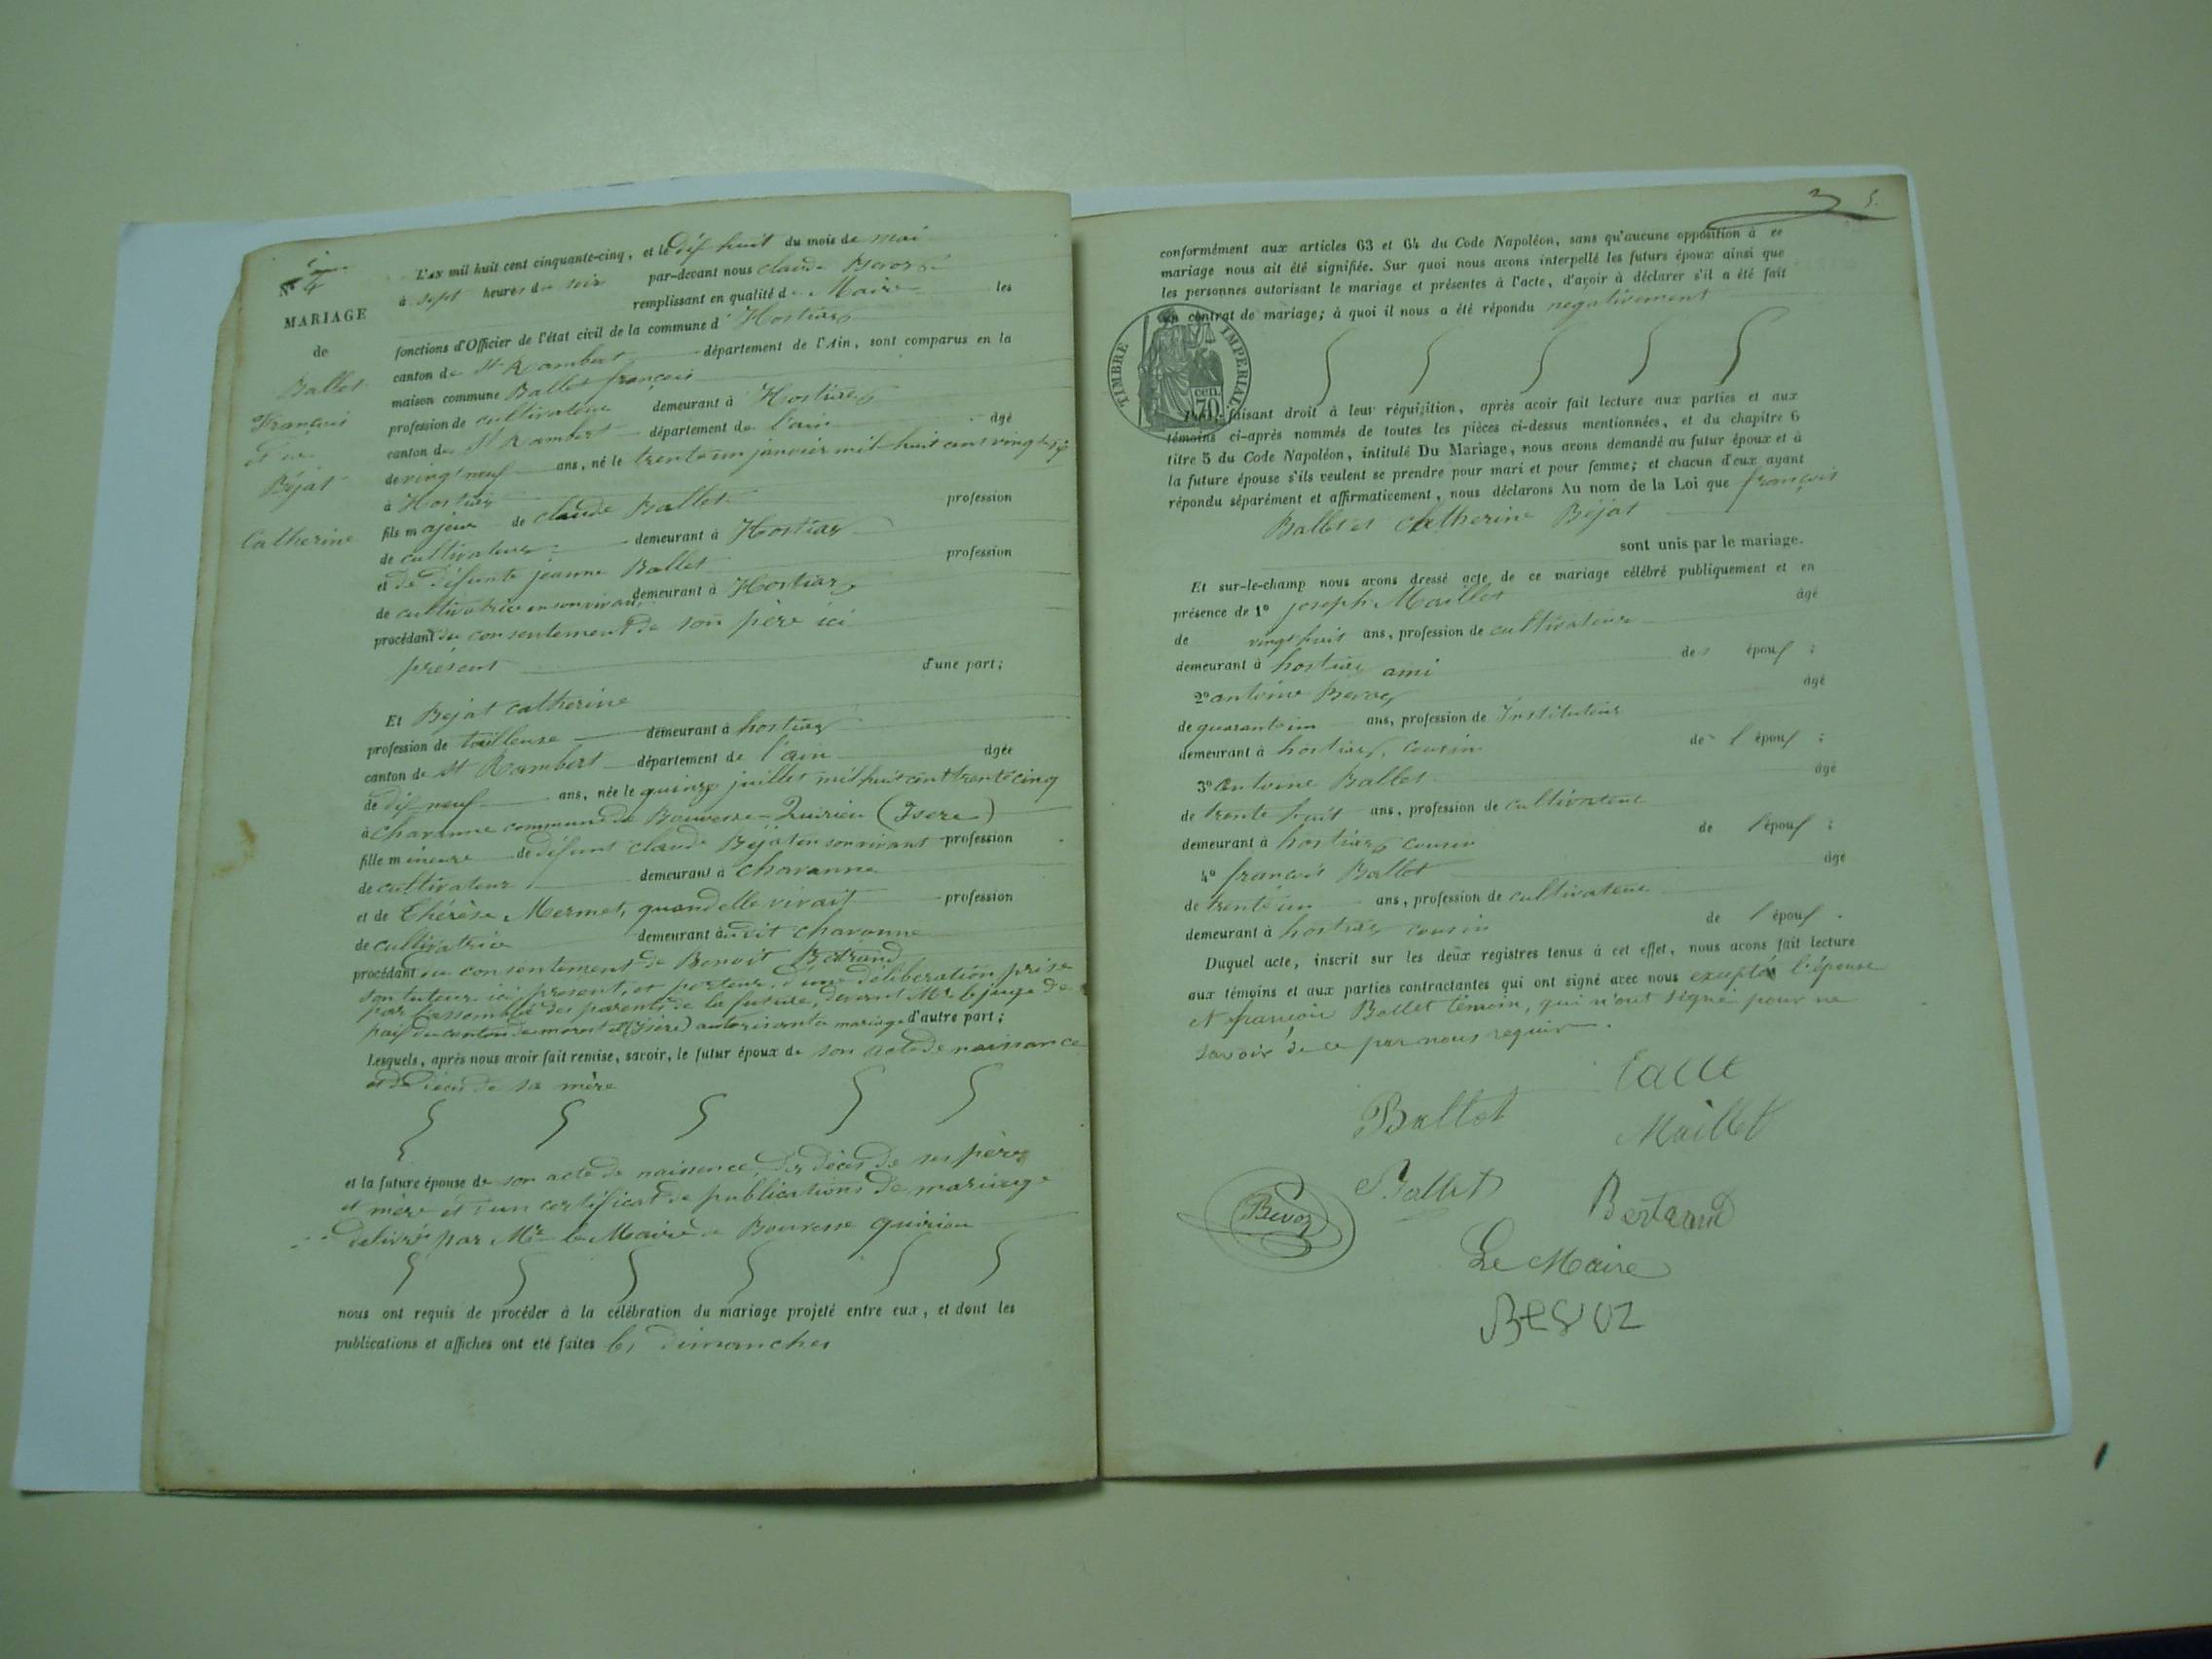 N° 4
MARIAGE
de
Ballet
François
et de
Béjat
Catherine
L'AN mil huit cent cinquante-cinq, et le dix huit du mois de mai
à sept heures du soir par-devant nous claude Bevoz
remplissant en qualité de Maire les
fonctions d'Officier de l'état civil de la commune d' Hostiaz
canton de St Rambert département de l'Ain, sont comparus en la
maison commune Ballet françois
profession de cultivateur demeurant à Hostiaz
canton de St Rambert département de l'ain âgé
de vingt neuf ans, né le trente un janvier mil huit cent vingt six
à Hostiaz
fils majeur de claude Ballet profession
de cultivateur demeurant à Hostiaz
et de défunte jeanne Ballet profession
de cultivatrice en son vivant demeurant à Hostiaz
procédant du consentement de son père ici
présent d'une part;
Et Bejat catherine
profession de tailleuse demeurant à hostiaz
canton de St Rambert département de l'ain âgée
de dix neuf ans, née le quinze juillet mil huit cent trente cinq
à charanne commune de Bouvesse-Quirieu (Isere)
fille mineure de défunt claude Béjat en son vivant profession
de cultivateur demeurant à charanne
et de Thérèse Mermet, quand elle vivait profession
de cultivatrice demeurant audit charanne
procédant du consentement de Benoit Betrand
son tuteur ici présent, et porteur d'une déliberation prise
par l'assemblé des parents de la future, devant Mr le juge de
paix du canton de morestel (Isère) autorisant ce mariage d'autre part;
Lesquels, après nous avoir fait remise, savoir, le futur époux de son acte de naissance
et de décès de sa mère
et la future épouse de son acte de naissence, des décès de ses père
et mère et d'un certificat de publications de mariage
delivré par Mr le Maire de Bouvesse quirieu
nous ont requis de procéder à la célébration du mariage projeté entre eux, et dont les
publications et affiches ont été faites les dimanches
3 5.
conformément aux articles 63 et 64 du Code Napoléon, sans qu'aucune opposition à ce
mariage nous ait été signifiée. Sur quoi nous avons interpellé les futurs époux ainsi que
les personnes autorisant le mariage et présentes à l'acte, d'avoir à déclarer s'il a été fait
un contrat de mariage; à quoi il nous a été répondu negativement
TIMBRE IMPERIAL
cen.
70
faisant droit à leur réquisition, après avoir fait lecture aux parties et aux
témoins ci-après nommés de toutes les pièces ci-dessus mentionnées, et du chapitre 6
titre 5 du Code Napoléon, intitulé Du Mariage, nous avons demandé au futur époux et à
la future épouse s'ils veulent se prendre pour mari et pour femme; et chacun d'eux ayant
répondu séparément et affirmativement, nous déclarons Au nom de la Loi que françois
Ballet et Catherine Béjat
sont unis par le mariage.
Et sur-le-champ nous avons dressé acte de ce mariage célébré publiquement et en
présence de 1° joseph Maillet âgé
de vingt huit ans, profession de cultivateur
demeurant à hostiaz ami des époux ;
2° antoine Bevoz âgé
de quarante un ans, profession de Instituteur
demeurant à hostiaz, cousin de l'époux ;
3° antoine Ballet âgé
de trente huit ans, profession de cultivateur
demeurant à hostiaz cousin de l'époux ;
4° françois Ballet âgé
de trente un ans, profession de cultivateur
demeurant à hostiaz cousin de l'époux .
Duquel acte, inscrit sur les deux registres tenus à cet effet, nous avons fait lecture
aux témoins et aux parties contractantes qui ont signé avec nous excepté l'épouse
et françois Ballet témoin, qui n'ont signé pour ne
savoir de ce par nous requis.
Ballet
Maillet
Ballet
Bevoz
Bertrand
Le Maire
Bevoz